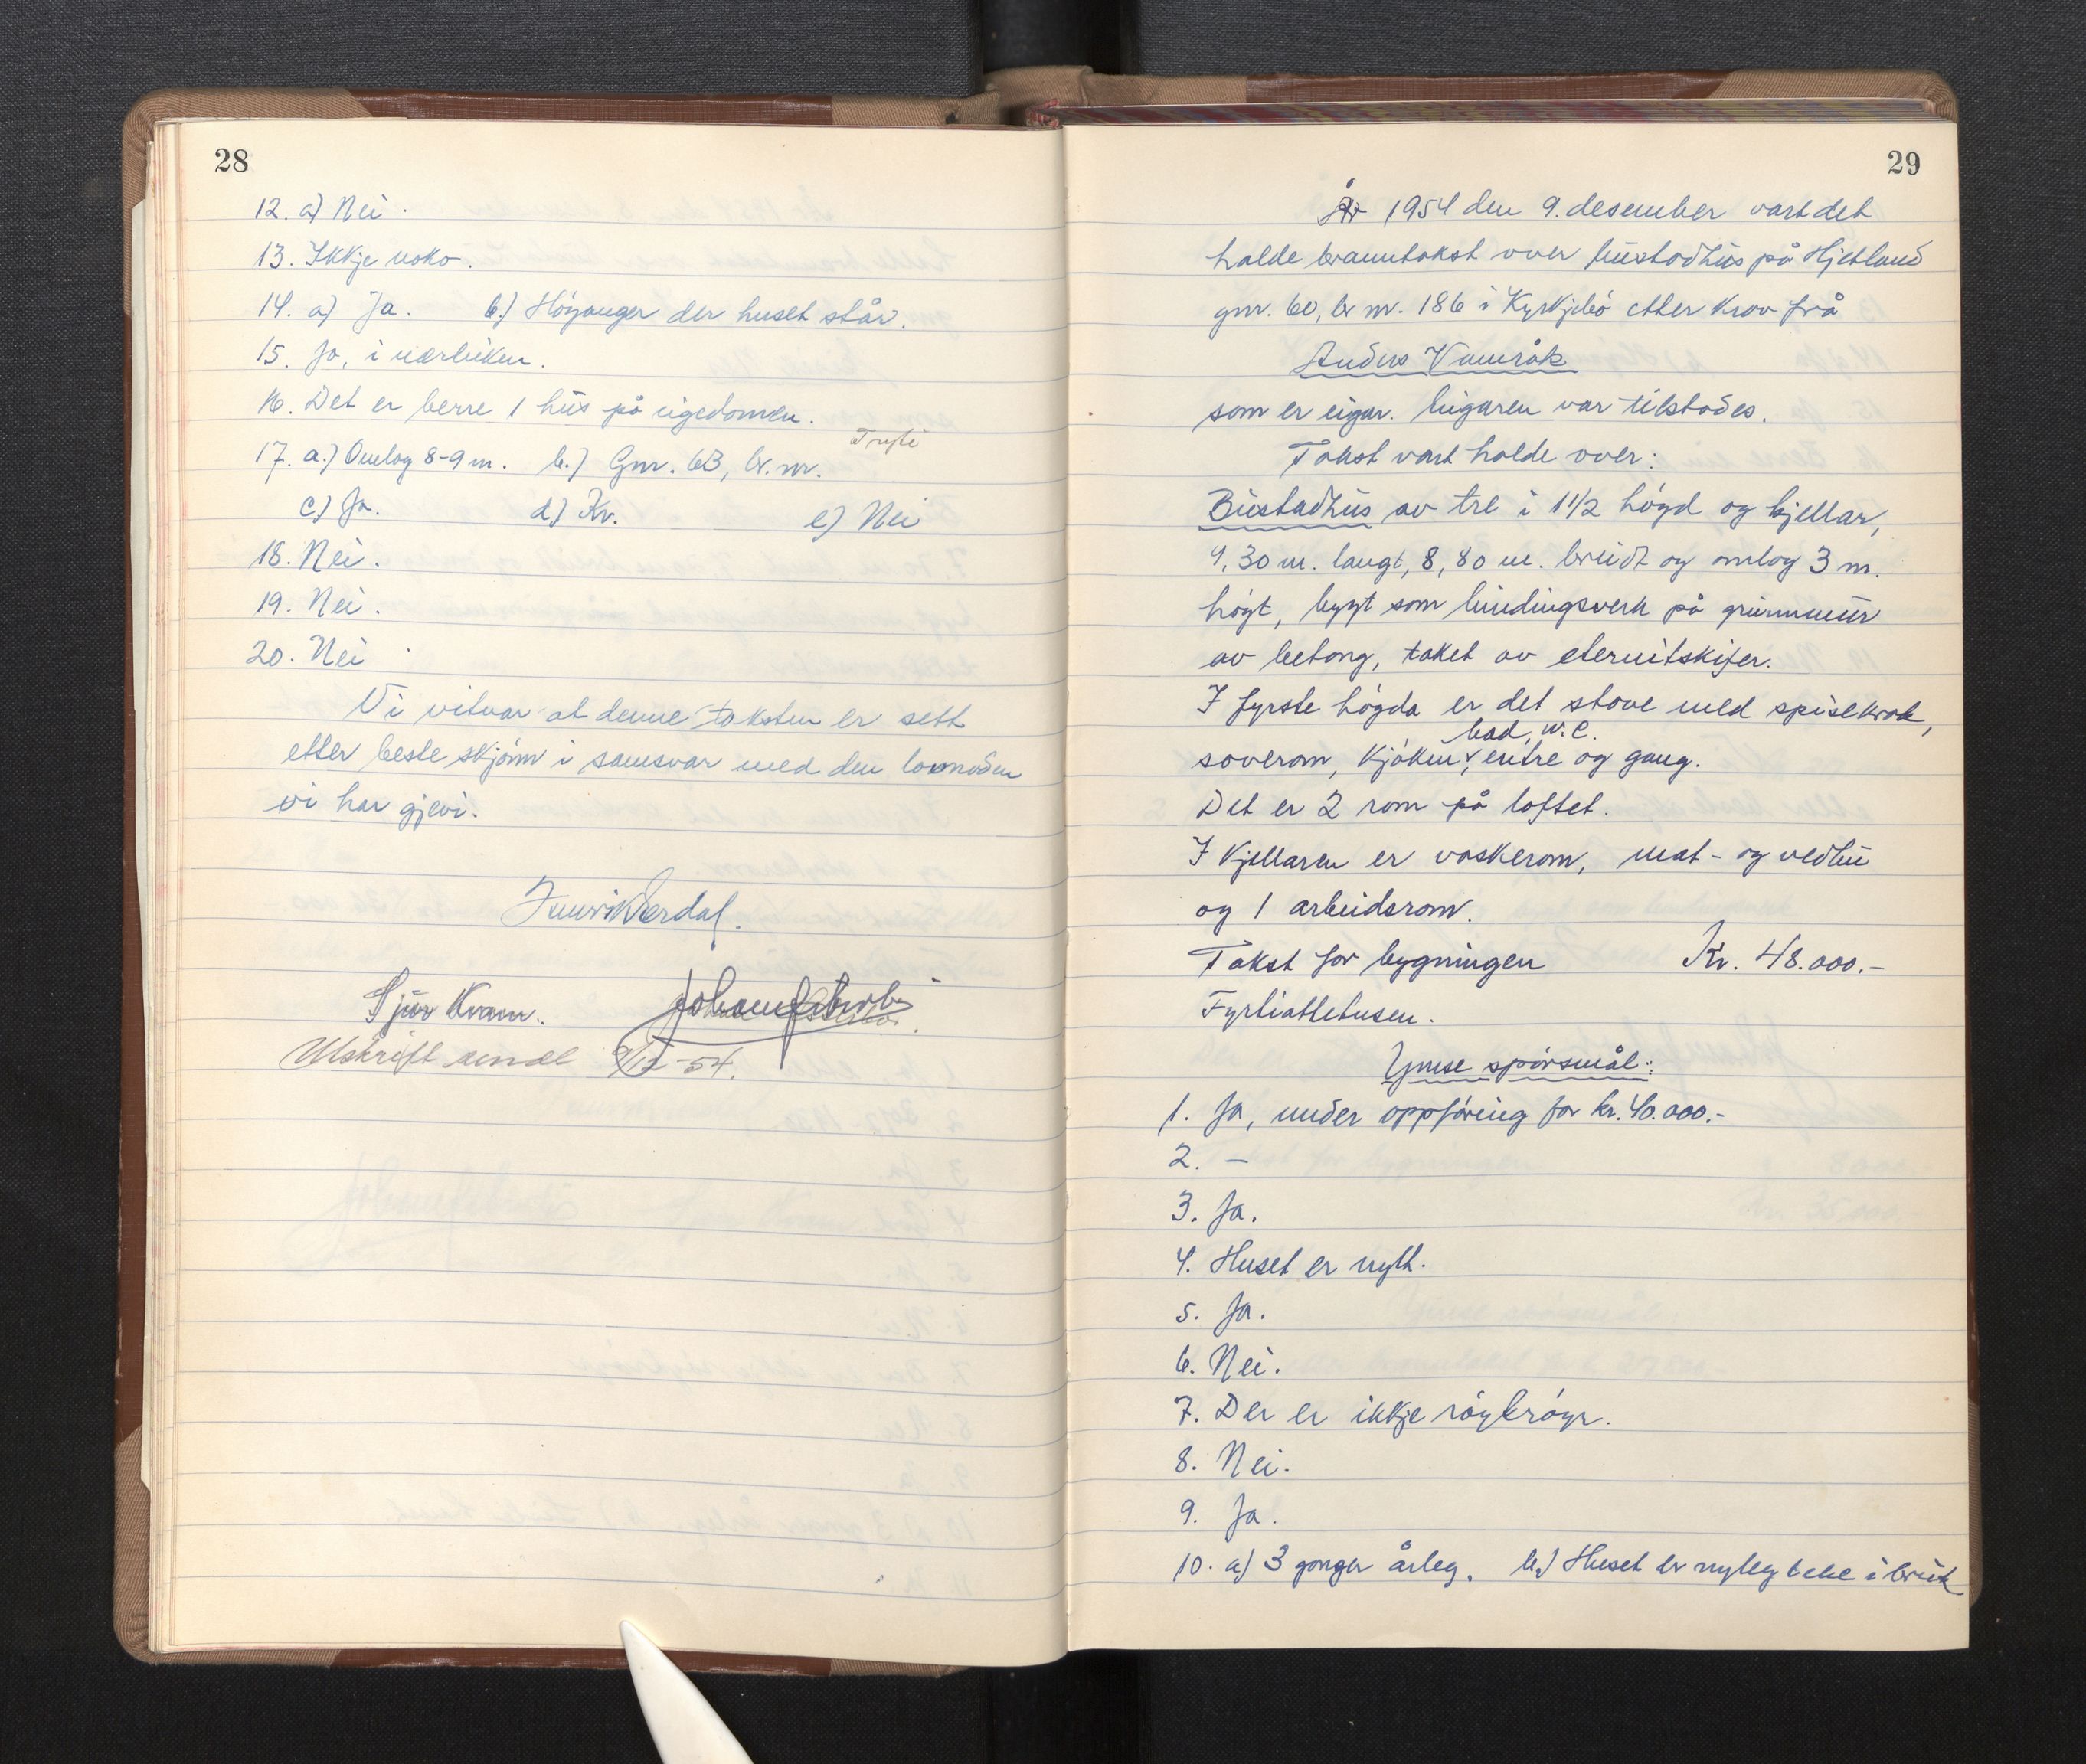 28
12. a) Nei.
13. Ikkje noko.
14. a) Ja. b.) Höyanger der huset står.
15. Ja, i nærleiken.
16. Det er berre 1 hus på eigedomen.
17. a.) Omlag 8-9 m. b.) Gnr. 63, br. nr.
c) Ja. d) Kr. e) Nei
18. Nei.
19. Nei.
20. Nei
Vi vitnar at denne taksten er sett
etter beste skjönn i samsvar med den lovnaden
vi har gjevi.
Sjur Kvam.
Utskrift sendt 9/12-54.
29
År 1954 den 9. desember vart det
halde branntakst over bustadhus på Hjetland
gnr. 60, br nr. 186 i Kyrkjebö etter krav frå
Anders Vamråk
som er eigar. Eigaren var tilstades.
Takst vart halde over:
Bustadhus av tre i 1 1/2 högd og kjellar,
9,30 m. langt, 8,80 m. breidt og omlag 3 m.
högt, bygt som bindingsverk på grunnmur
av betong, taket av eternitskifer.
I fyrste högda er det stove med spisekrok,
bad, w.c.
soverom, kjöken, entre og gang.
Det er 2 rom på loftet.
I kjellaren er vaskerom, mat- og vedbu
og 1 arbeidsrom.
Takst for bygningen Kr. 48.000.-
Fyrtiåttetusen.
Ymse spörsmål:
1. Ja, under oppföring for kr. 40.000.-
2. -
3. Ja.
4. Huset er nytt.
5. Ja.
6. Nei.
7. Der er ikkje röykröyr.
8. Nei.
9. Ja.
10. a) 3 gonger årleg. b.) Huset er nyleg teke i bruk